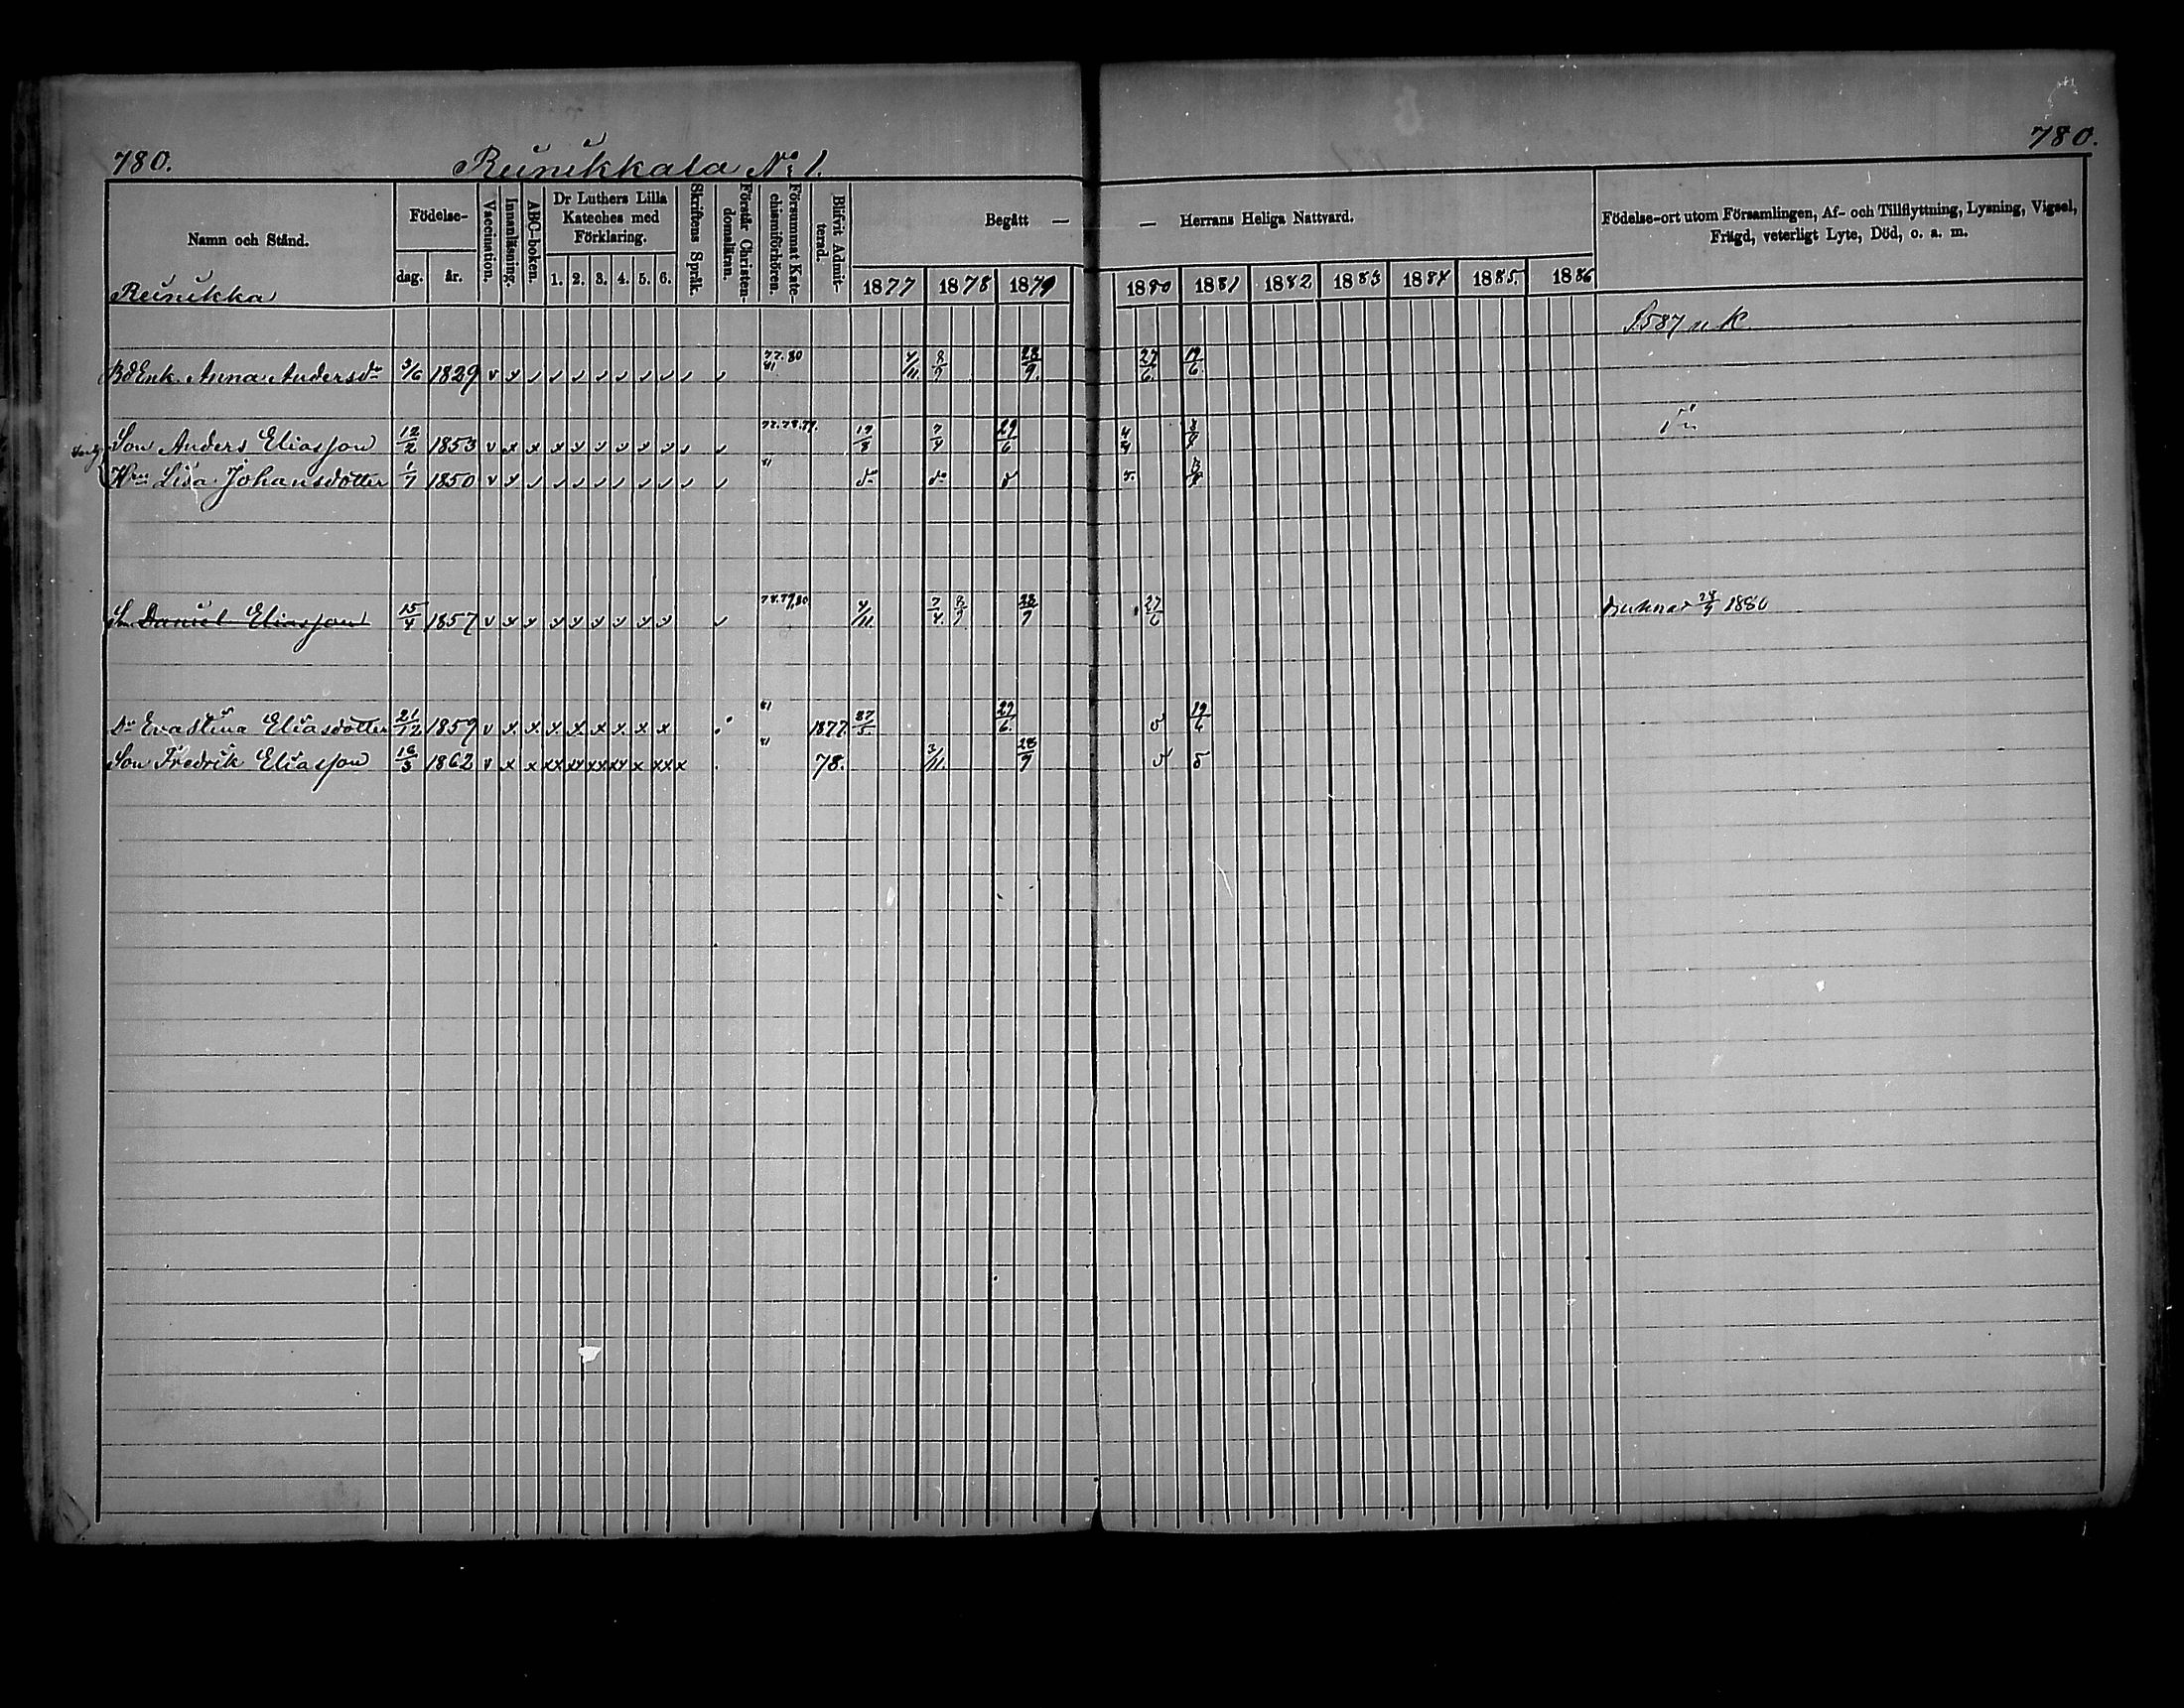 780.
Reinikkala No 1.
780.
Namn och Stånd.
Födelse-
dag.
år.
Vaccination.
Innanläsning.
ABC-boken.
Dr Luthers Lilla
Kateches med
Förklaring.
1. 2. 3. 4. 5. 6.
Skriftens Språk.
Förstår Christen-
domsläran.
Försummat Kate-
chismiförhören.
Blifvit Admit-
terad.
Begått —
— Herrans Heliga Nattvard.
1877 1878 1879 1880 1881 1882 1883 1884 1885. 1886
Födelse-ort utom Församlingen, Af- och Tillflyttning, Lysning, Vigsel,
Frägd, veterligt Lyte, Död, o. a. m.
Reinikka
S. 587 u K
BdEnk. Anna Andersdr 3/6 1829 v x 77. 80 81 4/11. 8/9 28/9. 27/6. 19/6.
Son Anders Eliasson 12/2 1853 v x x x x x x x x 77. 78. 79. 19/8 7/4 29/6 4/4
Hru Lisa Johansdotter 1/7 1850 v x 81 do do d
Sn Daniel Eliasson 15/4 1857 v x x x x x x x x 78. 79. 80 4/11. 7/4. 8/9 28/9 27/6 Drunknat 24/9 1880
Dr Eva Stina Eliasdotter 21/12 1859 v x x x x x x x x 81 1877. 27/5. 29/6. d 19/6
Son Fredrik Eliasson 18/3 1862 v x x xx xx xx xx x xx x 81 78. 3/11. 28/9 d d